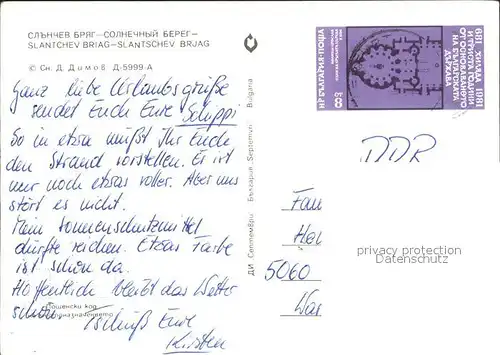 СЛЪНЧЕВ БРЯГ—СОЛНЕЧНЫЙ БЕРЕГ—
SLANTCHEV BRIAG—SLANTSCHEV BRJAG
© Сн. Д. Димов Д-5999-А
Ganz liebe Urlaubsgrüße
sendet Euch Eure Schippi
So in etwa müßt Ihr Euch
den Strand vorstellen. Er ist
nur noch etwas voller. Aber uns
stört es nicht.
Mein Sonnenschutzmittel
dürfte reichen. Etwas Farbe
ist schon da.
Hoffentlich bleibt das Wetter
schön.
Tschüß Eure
Kirsten
Пощенски код
ДИ Септември България Septemvri Bulgaria
681 ХИЛЯДА 1981
И ТРИСТА ГОДИНИ
ОТ ОСНОВАВАНЕТО
НА БЪЛГАРСКАТА
ДЪРЖАВА
НР БЪЛГАРИЯ·ПОЩА
8
DDR
Fam
Hei
5060
War
privacy protection
Datenschutz